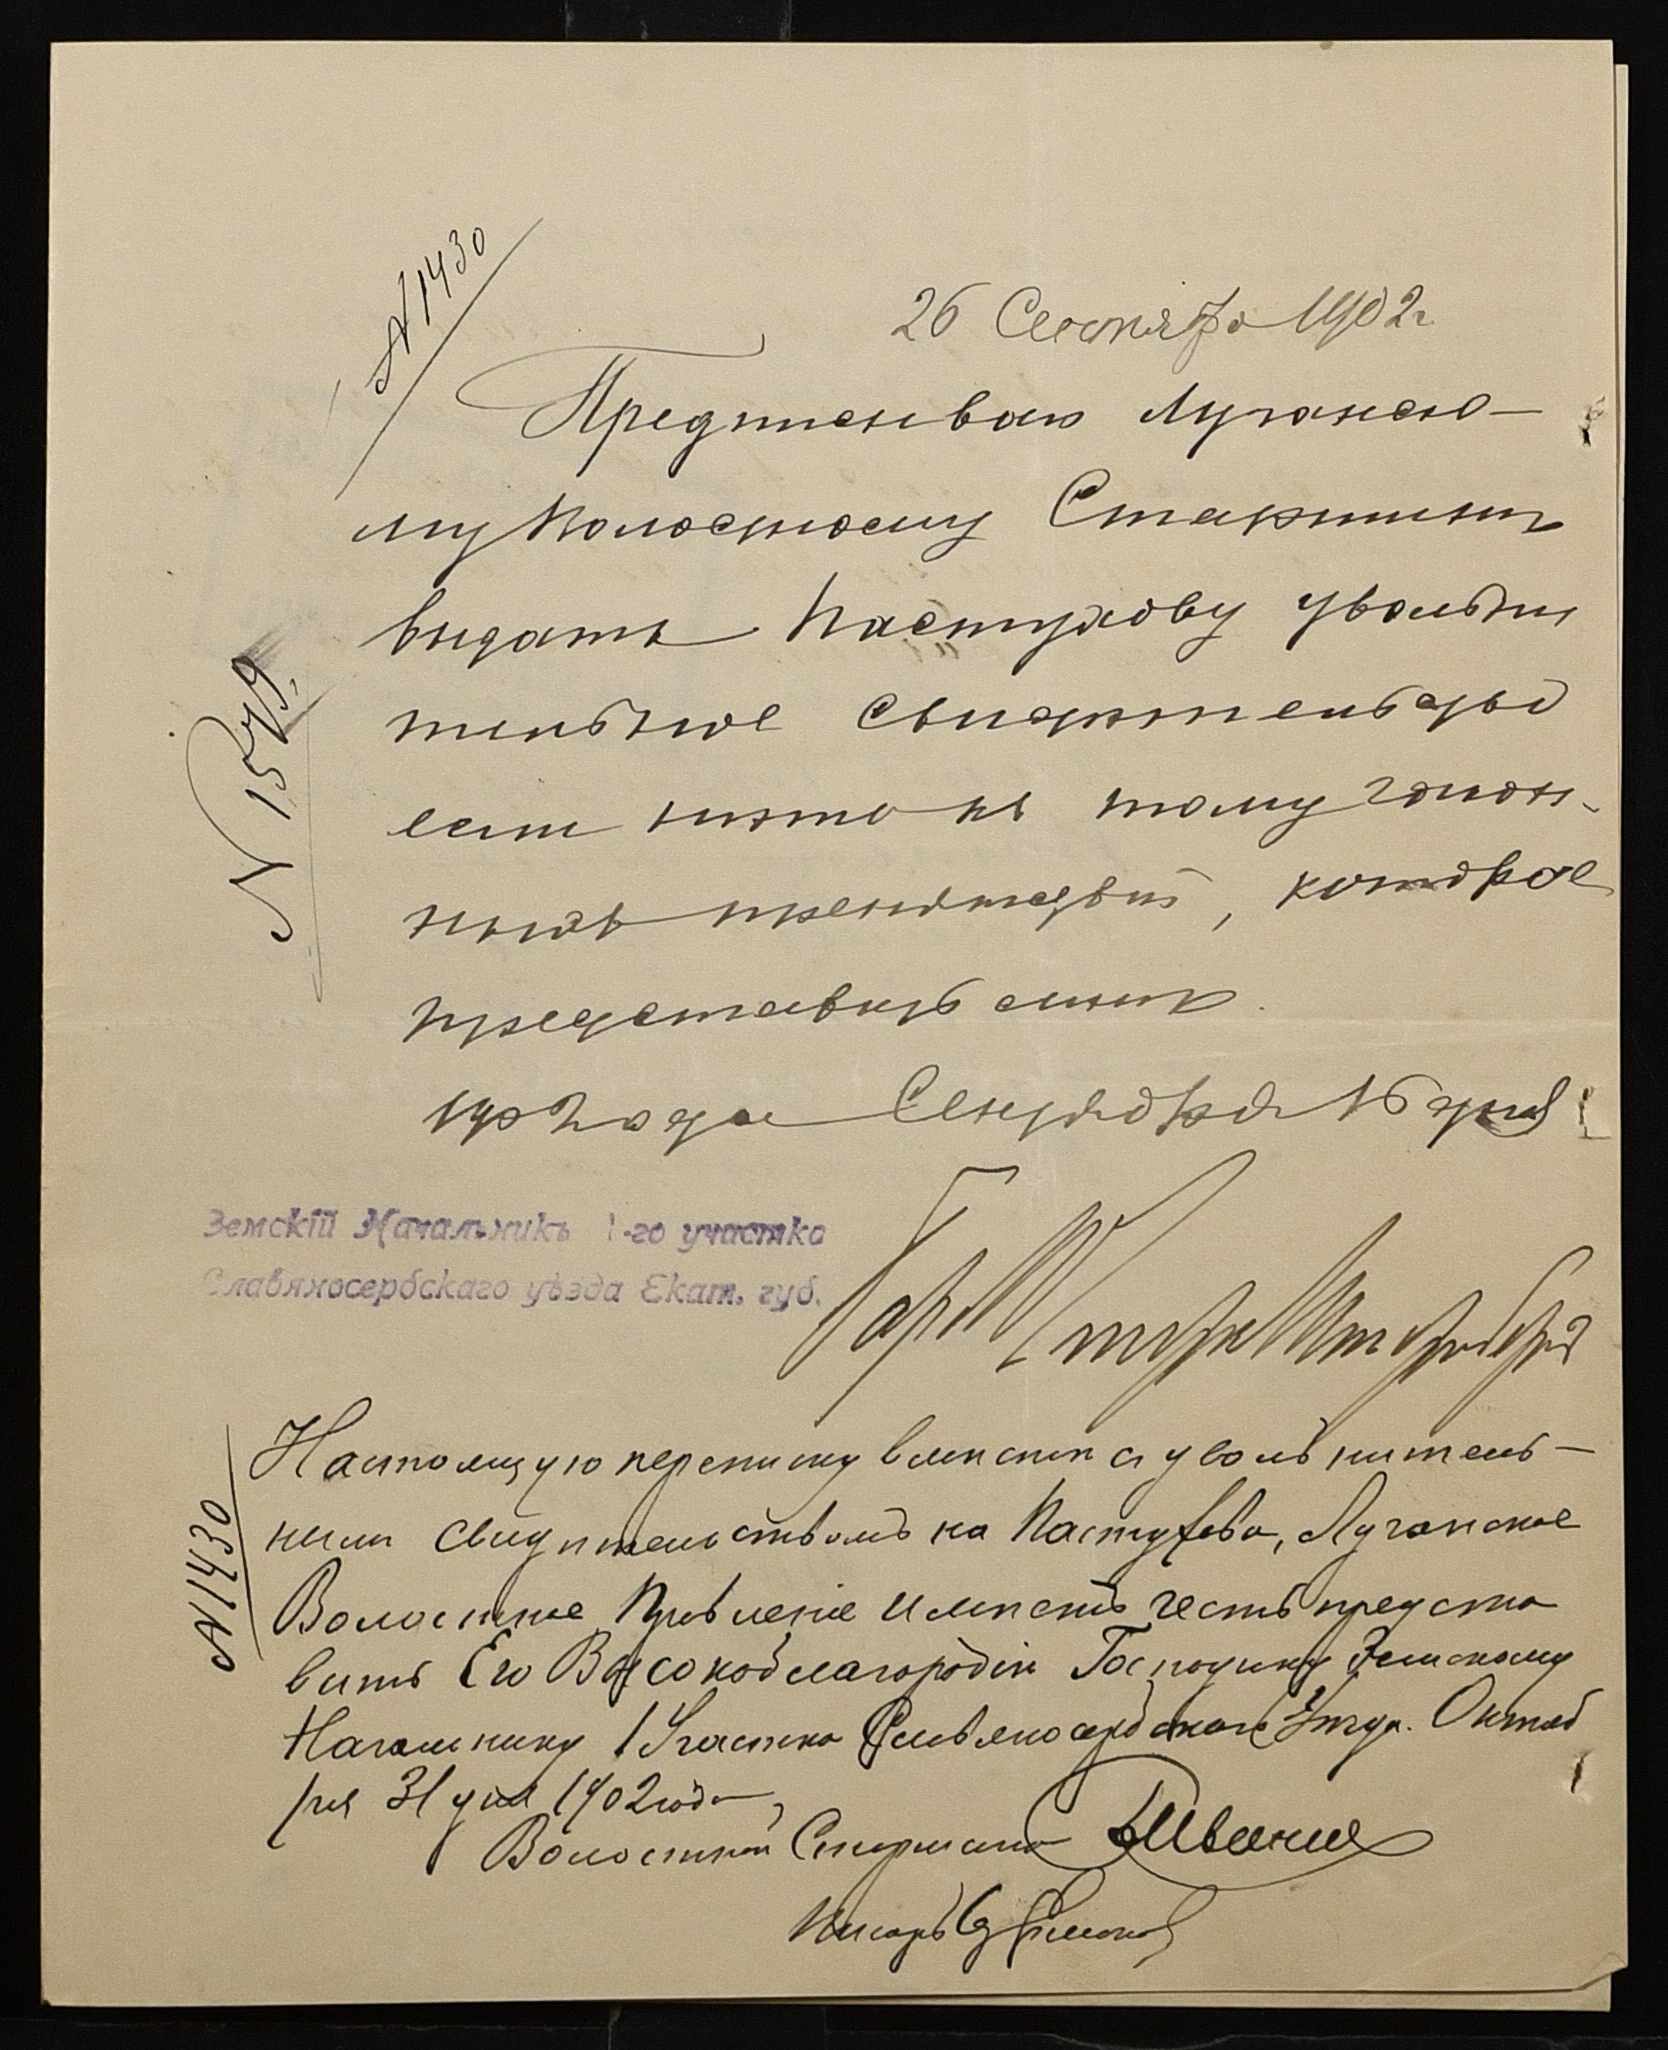 № 1430
26 Сентября 1902 г.
Предписываю Луганско-
му Волостному Старшинѣ
выдать Пастухову увольни
тельное свидѣтельство
если нѣтъ къ тому закон-
ныхъ препятствій, которое
представить мнѣ.
1902 года Сентября 16 дня
№ 1579
Земскій Начальникъ 1-го участка
Славяносербскаго уѣзда Екат. губ.
№ 1430
Настоящую переписку вмѣстѣ съ увольнитель-
нымъ свидѣтельствомъ на Пастухова, Луганское
Волостное Правленіе имѣетъ честь предста
вить Его Высокоблагородію Господину Земскому
Начальнику 1 Участка Славяносербскаго Уѣзда. Октяб
ря 31 дня 1902 года,
Волостной Старшина
Писарь